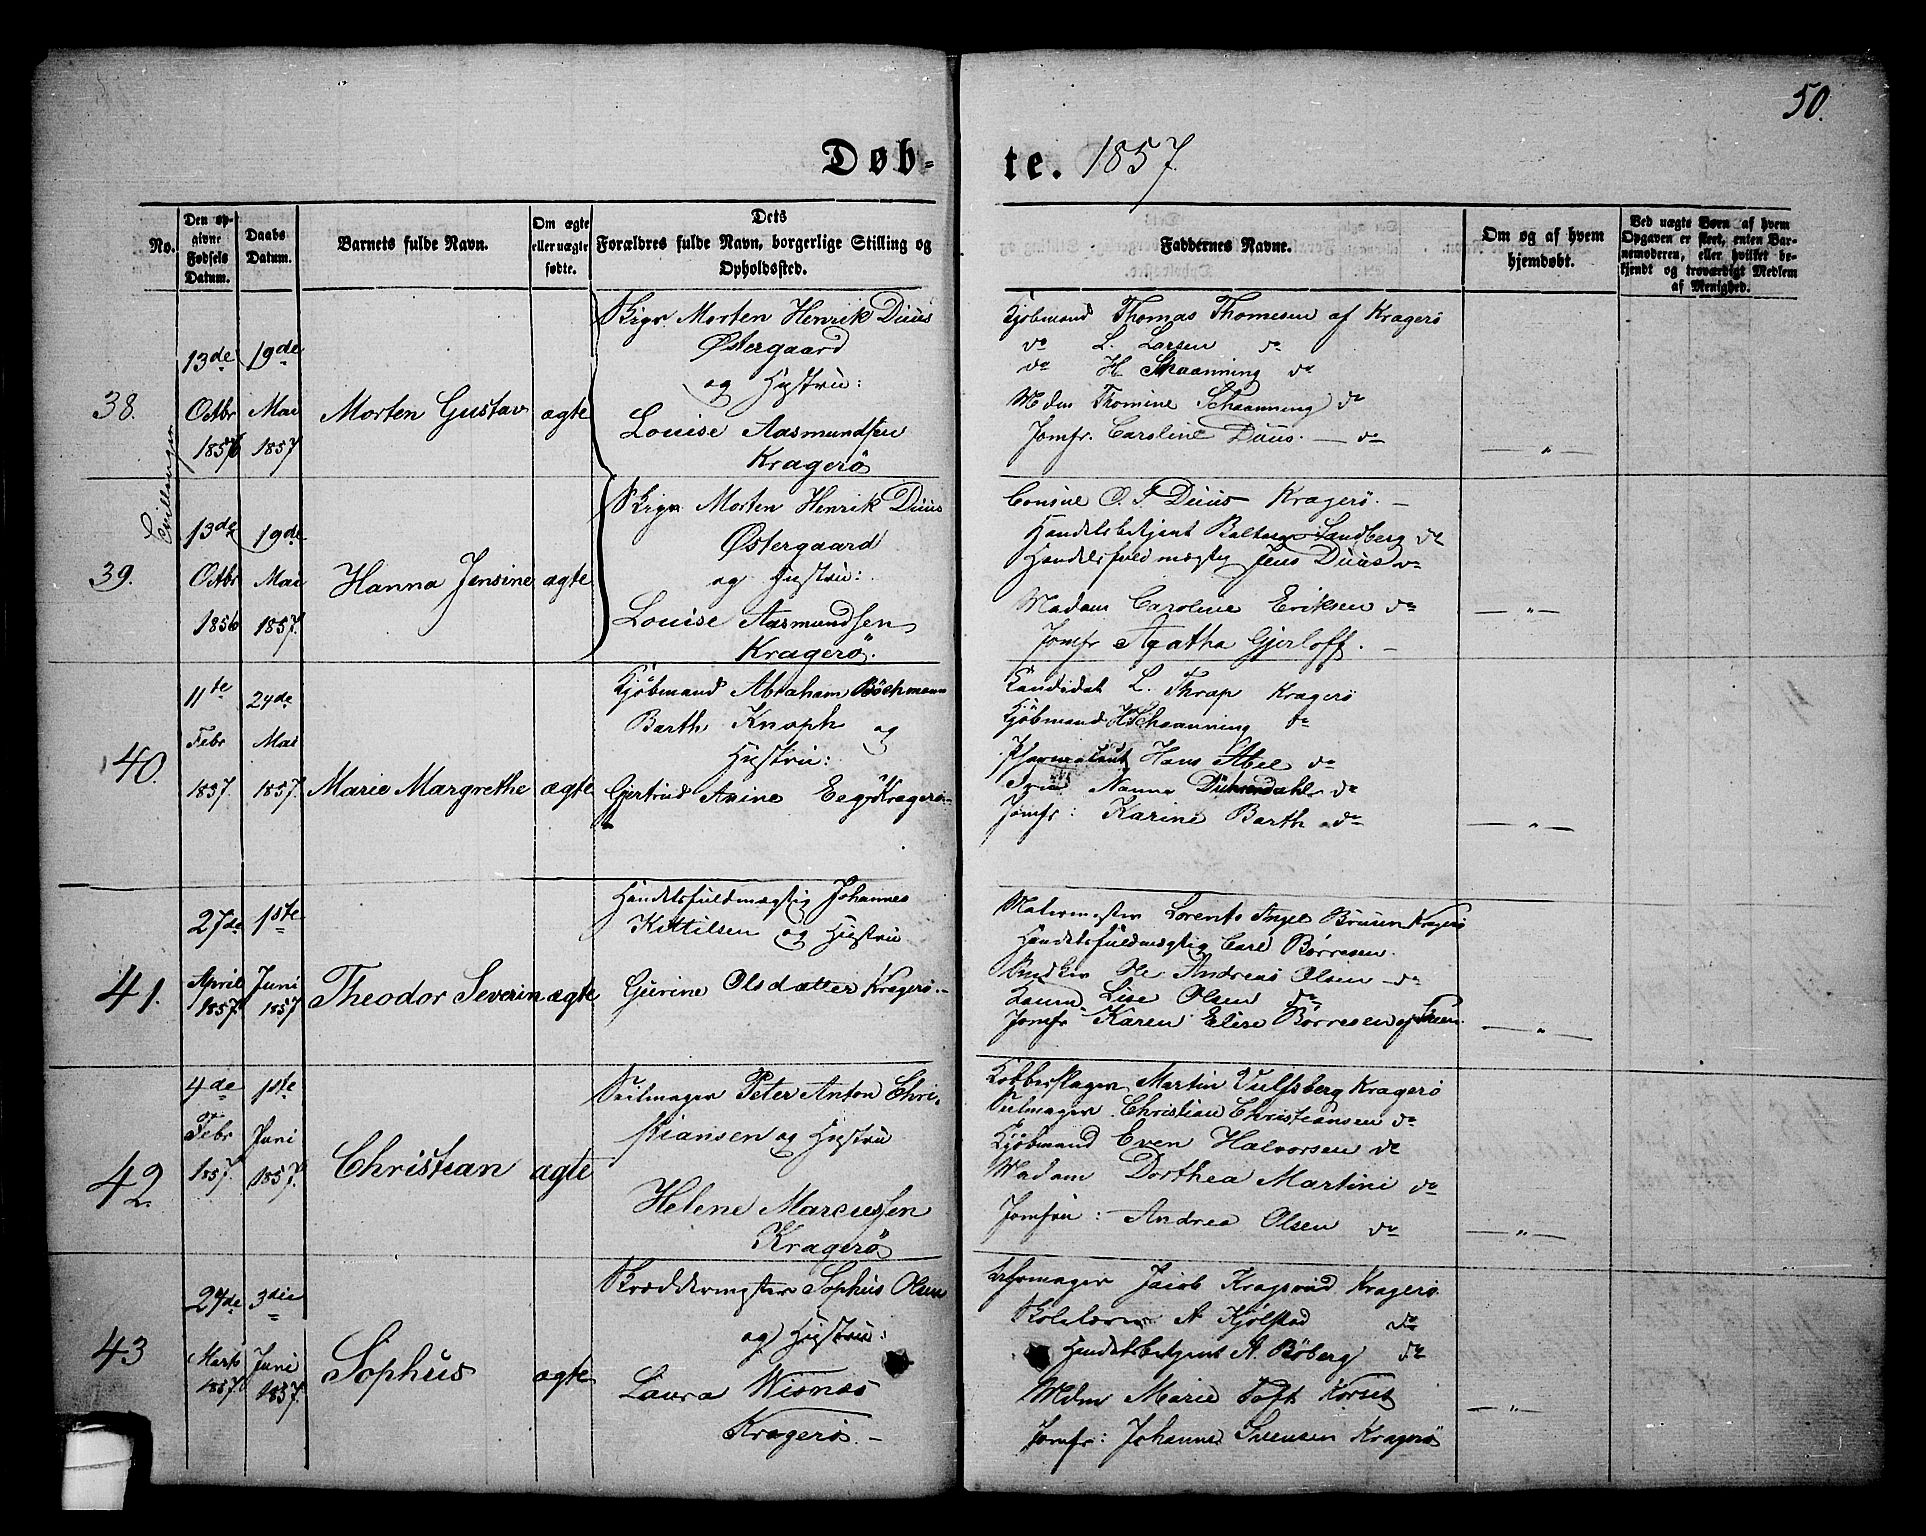 50.
Døb-
te. 1857.
No.
Den op-
givne
Fødsels
Datum.
Daabs
Datum.
Barnets fulde Navn.
Om ægte
eller uægte
fødte.
Dets
Forældres fulde Navn, borgerlige Stilling og
Opholdssted.
Faddernes Navne.
Om og af hvem
hjemdøbt.
Ved uægte Børn af hvem
Opgaven er skeet, enten Bar-
nemoderen, eller hvilket be-
kjendt og troværdigt Medlem
af Menighed.
38.
13de
Octbr
1856
19de
Mai
1857
Morten Gustav
ægte
Skipr. Morten Henrik Duus
Østergaard
og Hustru:
Louise Aasmundsen
Kragerö
Kjöbmand Thomas Thomesen af Kragerö
do L. Larsen do
do H Schaanning do
Mdm Thomine Schaanning do
Jomfr. Caroline Duus. — do
— „ —
Tvillinger
39.
13de
Octbr
1856
19de
Mai
1857.
Hanna Jensine
ægte
Skipr Morten Henrik Duus
Østergaard
og Hustru:
Louise Aasmundsen
Kragerö.
Consul O. Duus Kragerö. —
Handelsbetjent Sandberg do
Handelsfuldmægtig Jens Duus do
Madam Caroline Eriksen do
Jomfr Agatha Gjerloff. —
— „ —
40.
11te
Febr
1857.
24de
Mai
1857.
Marie Margrethe
ægte
Kjöbmand Abraham Böckmann
Barth Knoph og
Hustru:
Gjertrud Anine Kragerö.
Kandidat L. Thrap Kragerö
Kjöbmand H Schaanning do
Pharmaceut Hans Abel do
Nanna do
Jomfr: Karine Barth do
— „ —
41.
27de
April
1857.
1ste
Juni
1857
Theodor Severin
ægte
Handelsfuldmægtig Johannes
Kittilsen og Hustru
Gurine Olsdatter Kragerö. —
Malermester Lorents Kragerö
Handelsfuldmægtig Carl Börresen.
Andreas Olsen — do
Lise Olsen do
Jomfr Karen Elise Börresen af
— „ —
42.
4de
Febr
1857.
1ste
Juni
1857.
Christian
ægte
Seilmager Peter Anton Chri-
stiansen og Hustru
Helene Marcussen
Kragerö
Kobberslager Martin Vulfsberg Kragerö
Seilmager Christian Christiansen do
Kjöbmand Even Halvorsen do
Madam Dorthea Martini do
Jomfru: Andrea Olsen do
— „ —
43
24de
Marts
1857.
3die
Juni
1857.
Sophus
ægte
Skræddermester Sophus Olsen
og Hustru:
Laura Wisnæs
Kragerö. —
Uhrmager Jacob Kragerö.
Skolelærer A Kjölstad do
Handelsbetjent A. Böberg do
Mdm Marie Toft
Jomfr: Johanne Svensen Kragerö
— „ —